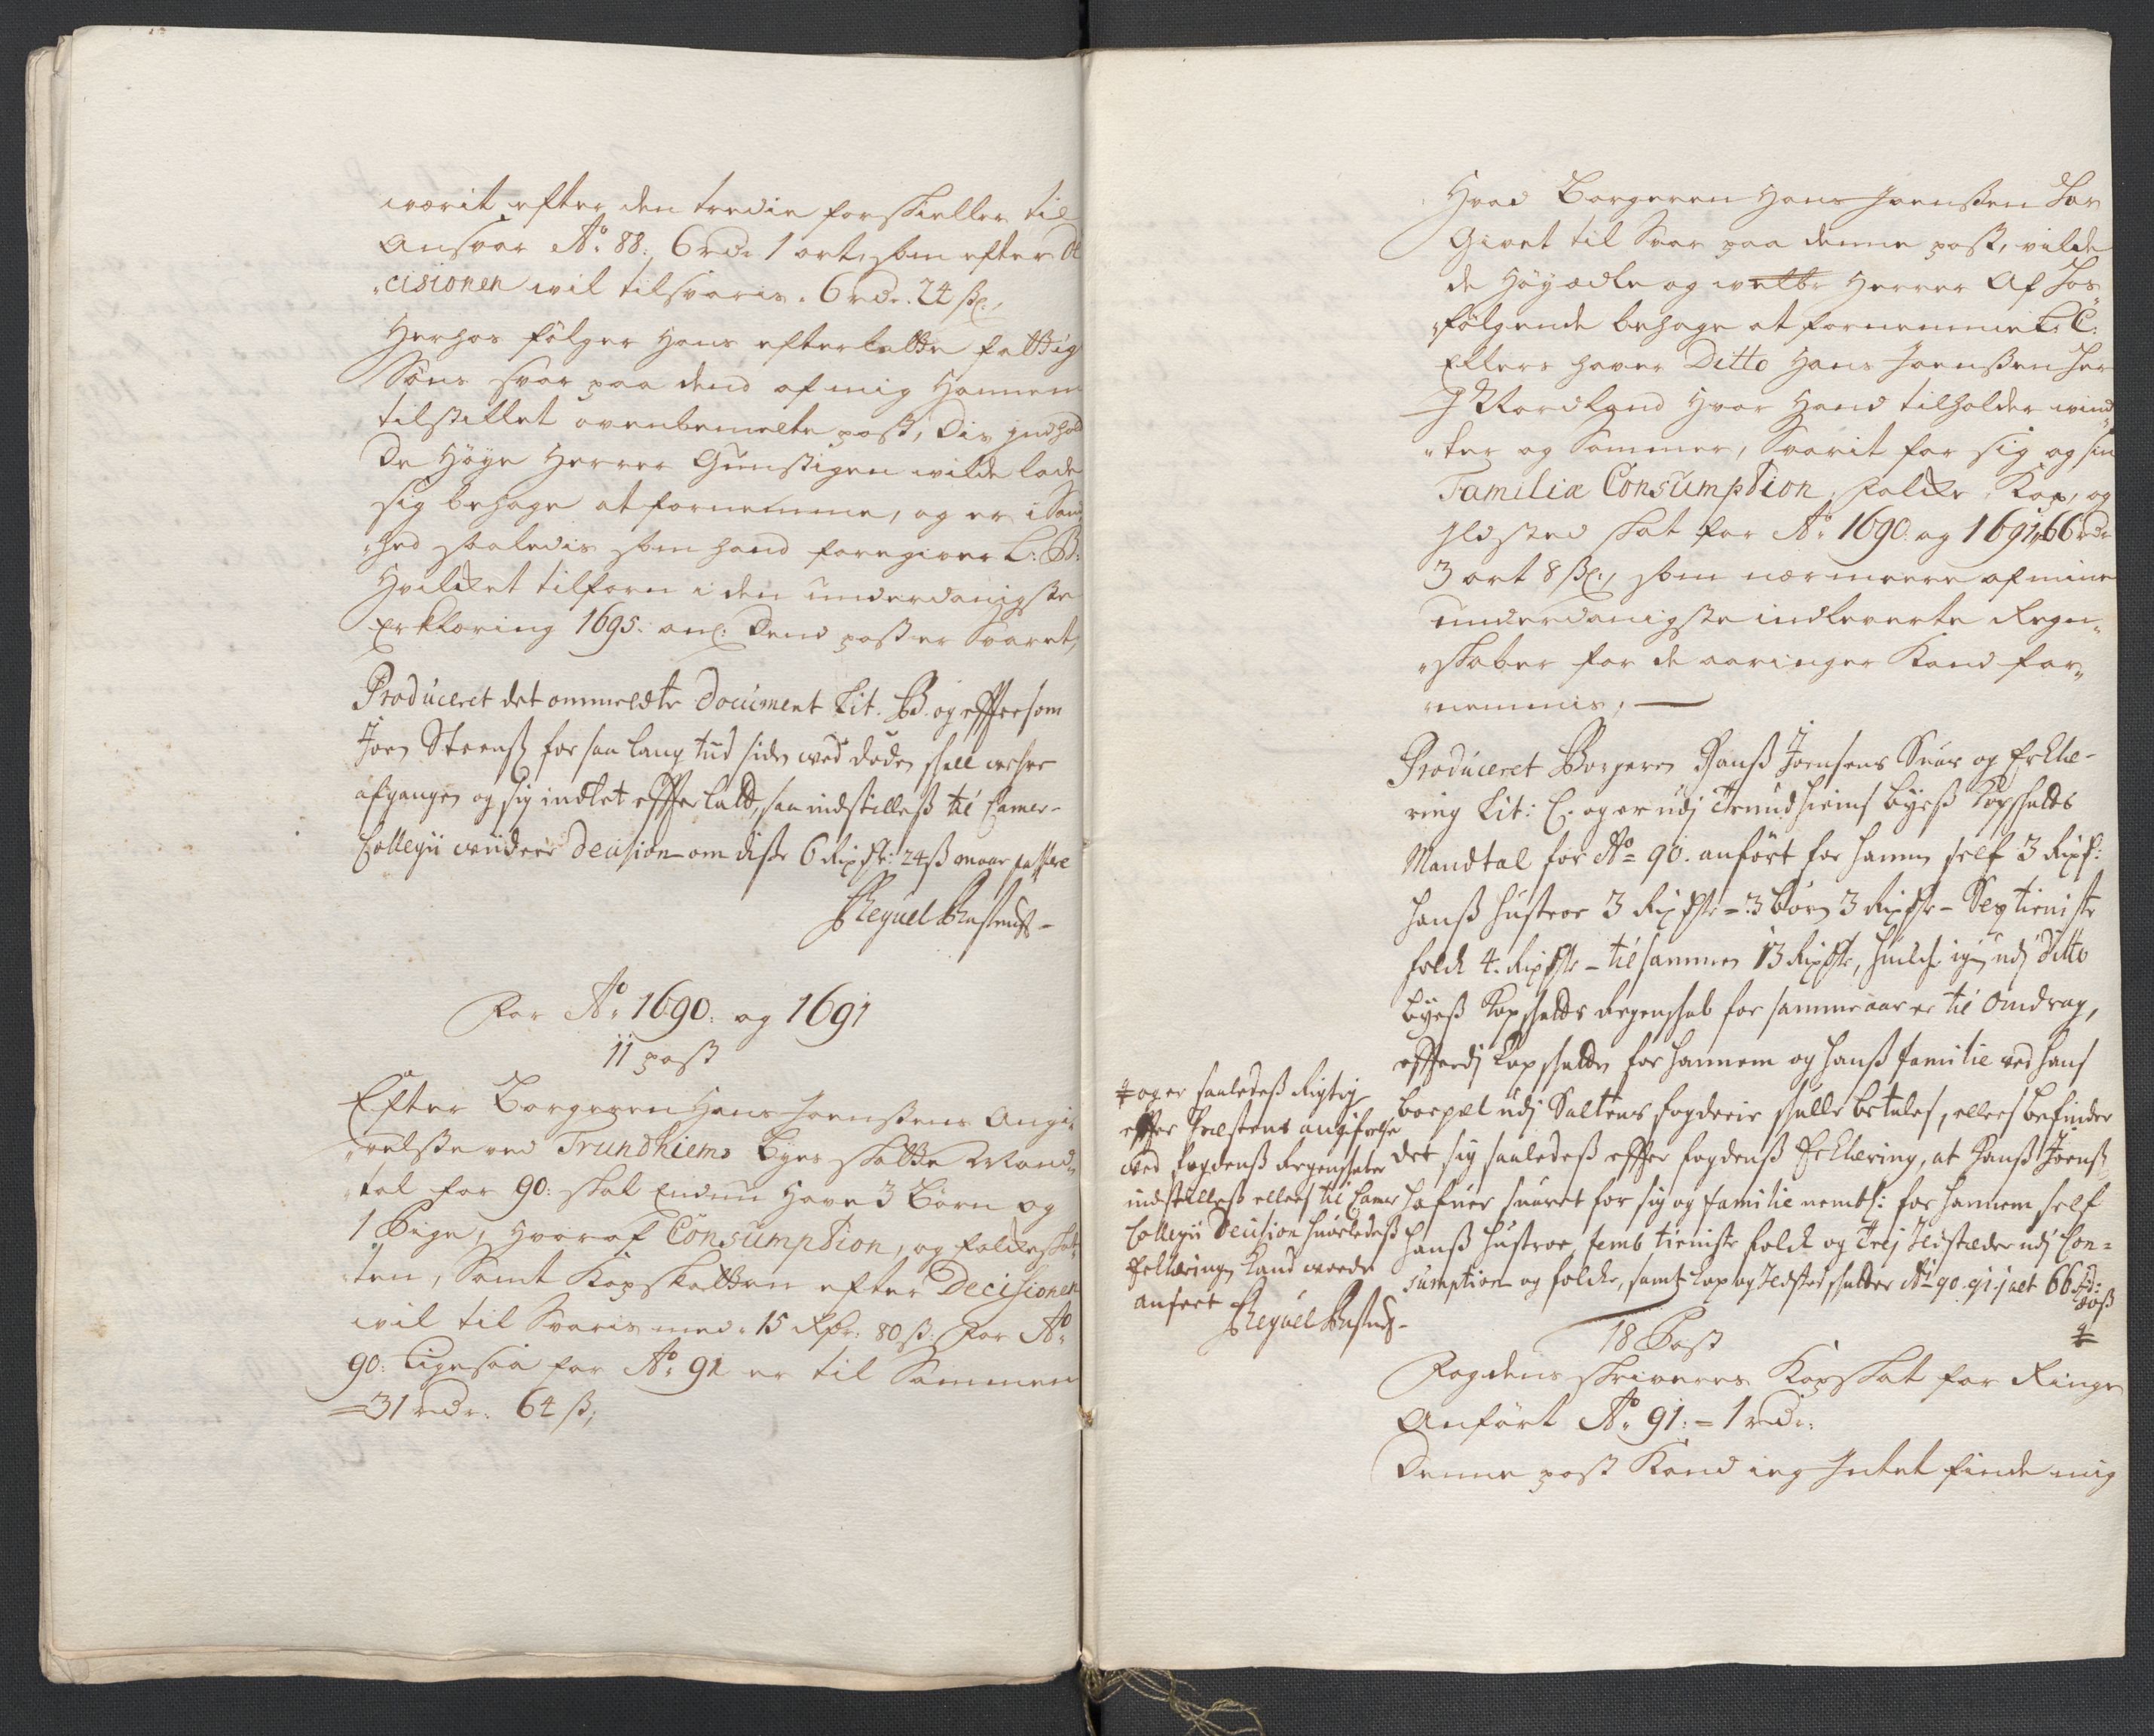 værit efter den tredie forskieller til
Ansvar Ao: 88: 6 rdr 1 ort, som efter De
cisionen wil tilsvaris. 6 rdr. 24 ß,
Herhos følger Hans efterlatte fattig
Søns svar paa dend af mig Hannem
tilstillet ovenbemelte post, Dis Indhold
De Høye Herrer Gunstigen wilde lade
sig behage at fornemme, og er i Sand
hed saaledis som hand foregiver L: B:
Hvilket tilforn i den underdanigste
Erklæring 1695. Dend post er Svaret,
Produceret det ommeldte Document Lit. B. og effter som
Joen Steenß for saa lang tiid siden ved døden skall were
afgangen og sig indtet effterladt, saa indstilleß til Camer-
Collegii videre Decision om diße 6 Rixdr: 24 ß maa passere
For Ao 1690: og 1691
11 post
Efter Borgeren Hans Joensens Angi
velse ved Trundhiems Byes skatte Mand
tal for 90: skal Endnu Have 3 Børn og
1 Pige, Hvoraf Consumption, og folkeskat
ten, Samt Kopskatten efter Decisionen
wil til Svaris med 15 Rdr: 80 ß: For Ao
90: Ligesaa for Ao 91 er til Sammen
31 rdr. 64 ß,
Hvad Borgeren Hans Joensen har
Givet til Svar paa denne post, vilde
de Høyædle og welbr Herrer Af Hos
følgende behage at fornemme L: C:
Ellers haver Ditto Hans Joensen her
I Nordland Hvor Hand tilholder wind
ter og Sommer, Svarit for sig og sin
Familiæ Consumption, Folke, Kop, og
Ildsted skat for Ao 1690 og 1691, 66 rdr
3 ort 8 ß, som nærmeere af mine
underdanigste indleverte Regn
skaber for de aaringer Kand for
nemmis,
Produceret Borgeren Hanß Joensens Suar og Erklæ-
ring Lit: C. og er udj Trundhiems byeß Kopskatts
Mandtal for Ao 90. anført for hannem self 3 Rixdr:
Hanß Hustroe 3 Rixdr - 3 Børn 3 Rixdr - Sex tieniste
folck 4. Rixdr - tilsammen 13 Rixdr, huilche igien udj Ditto
byeß Kopskatts Regenskab for samme aar er til Omdrag,
efterdj Kopskatten for hannem og hanß familie ved hans
boepæl udj Saltens fogderie skulle betales, ellers befinder
det sig saaledeß effter fogdenß Erklæring, at Hanß Joenß
hafuer suaret for sig og familie nembl: for hannem self
hanß hustroe, femb tieniste folck og Trej Ildstæder udj Con-
sumption og folcke, samt Kop og Ildsted skatter Ao 90. 91. jalt 66 rdr:
og er saaledeß Rigtig
effter Præstens angifuelse
ved fogdenß Regenskaber
indstilleß ellers til Camer
Collegii Decision huorledeß
Erklæringen kand worde
anseet
18 Post
Fogdens skriveres Kopskat for Ringe
Anført Ao 91: = 1 rdr:
Denne post Kand ieg Intet finde mig